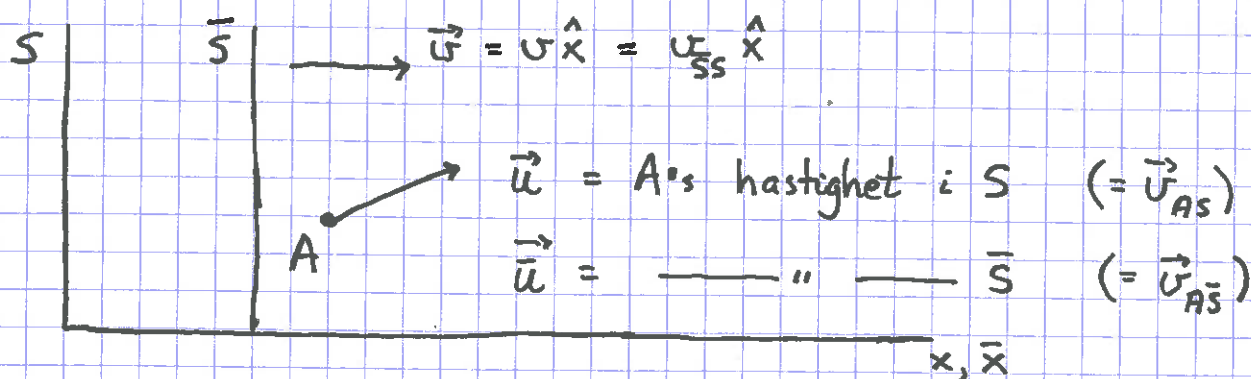 S S̄ v⃗ = v x̂ = v_S̄S x̂
u⃗ = A:s hastighet i S (= v⃗_AS)
A
ū⃗ = —— " —— S̄ (= v⃗_AS̄)
x, x̄